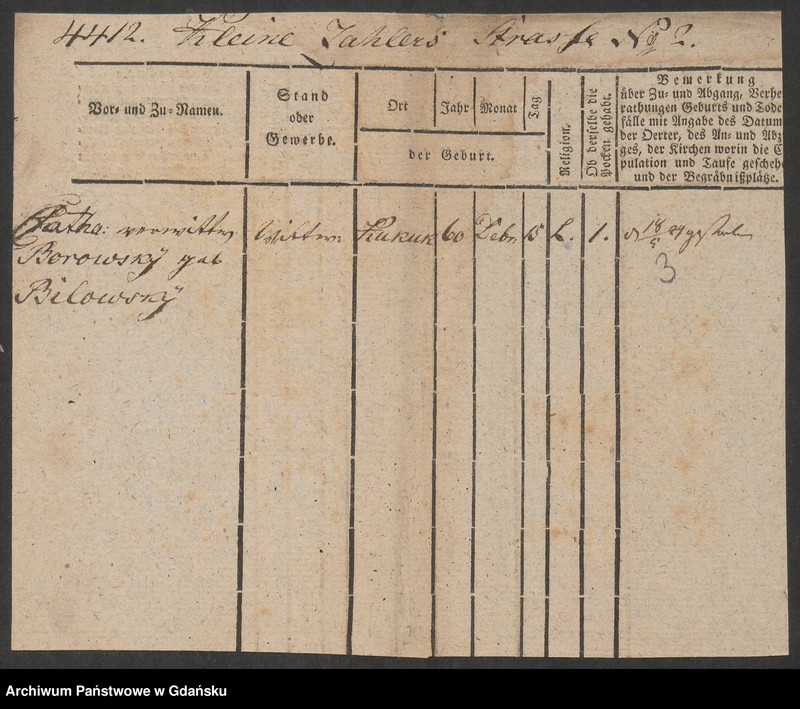 4412. Kleine Zahlers Strasse No 2.
Vor- und Zu-Namen.
Stand
oder
Gewerbe.
Ort
Jahr
Monat
Tag
der Geburt.
Religion.
Ob derselbe die
Pocken gehabt.
Bemerkung
über Zu- und Abgang, Verhe
rathungen Geburts und Tode
fälle mit Angabe des Datum
der Oerter, des An- und Abz
ges, der Kirchen worin die C
pulation und Taufe gescheh
und der Begräbnißplätze.
Catha: verwittw
Borowsky geb
Bilowsky
Wittwe
Kukuk
60
Debr
15
L.
1.
d 18/5 24 gestorben
3
Archiwum Państwowe w Gdańsku